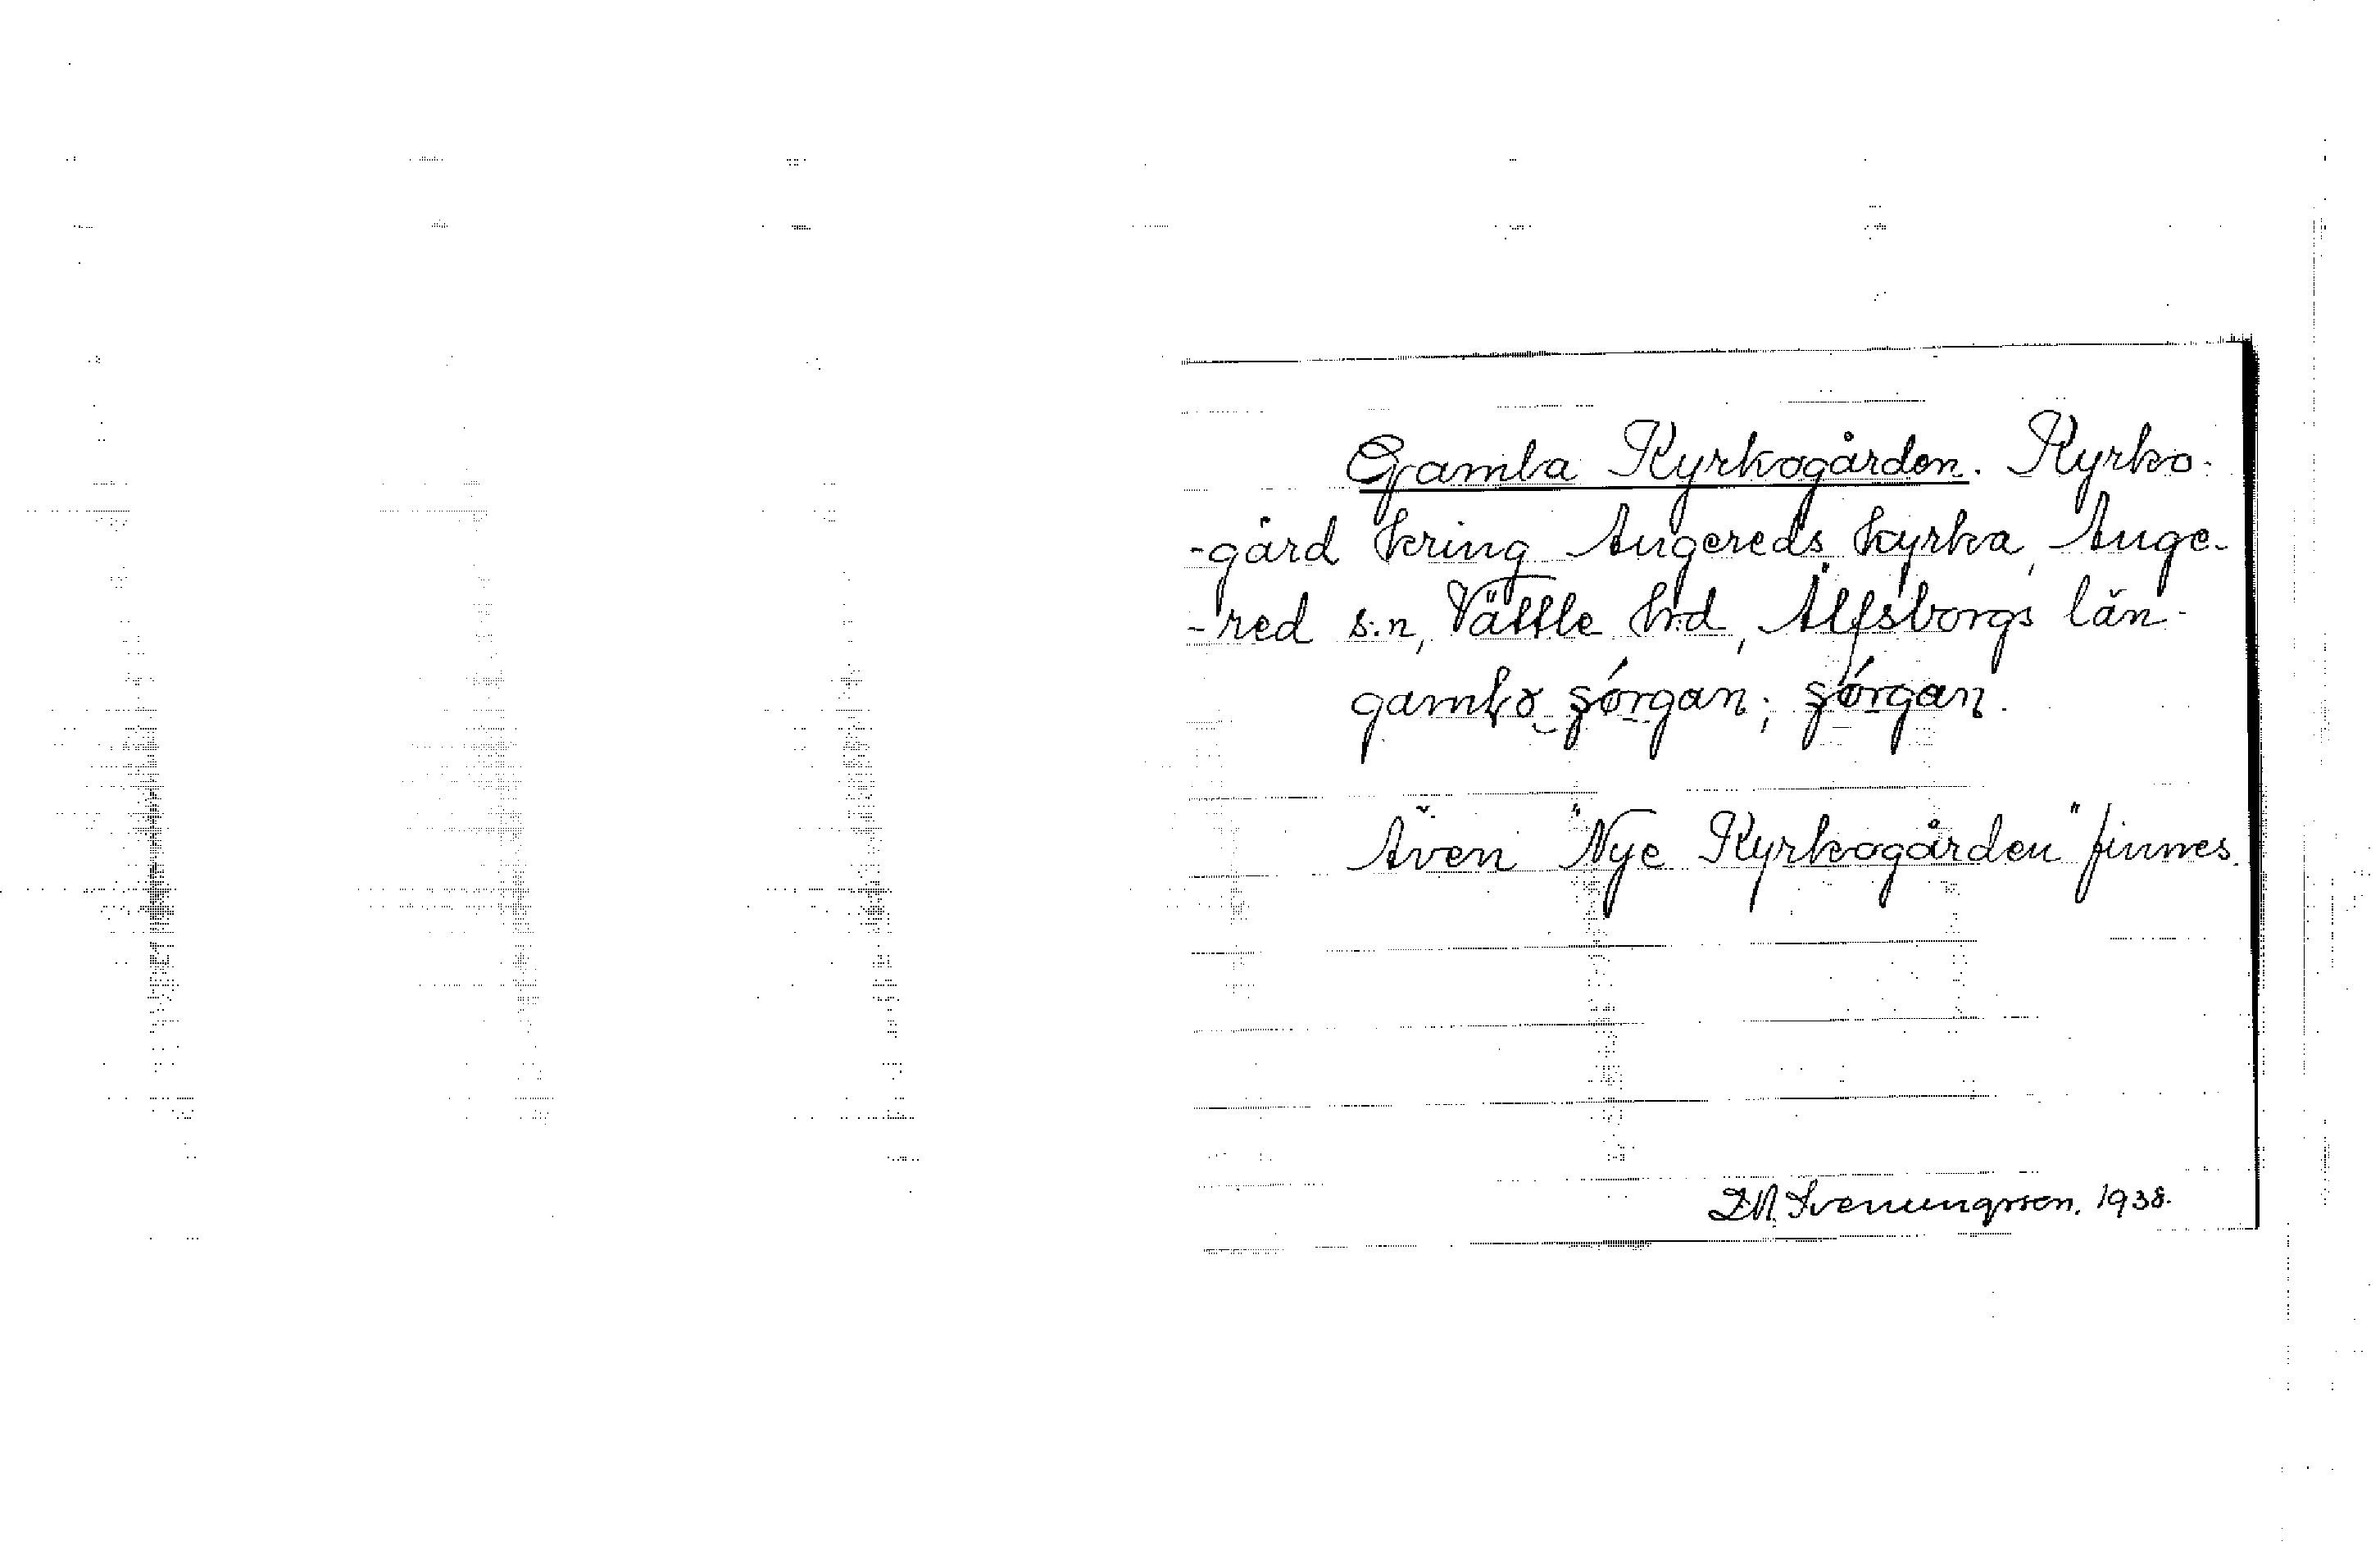 Gamla Kyrkogården. Kyrko-
-gård kring Angereds kyrka, Ange-
-red s:n, Vättle hd, Älfsborgs län.
Även "Nye Kyrkogården" finnes.
D.N. Svenungsson. 1938.